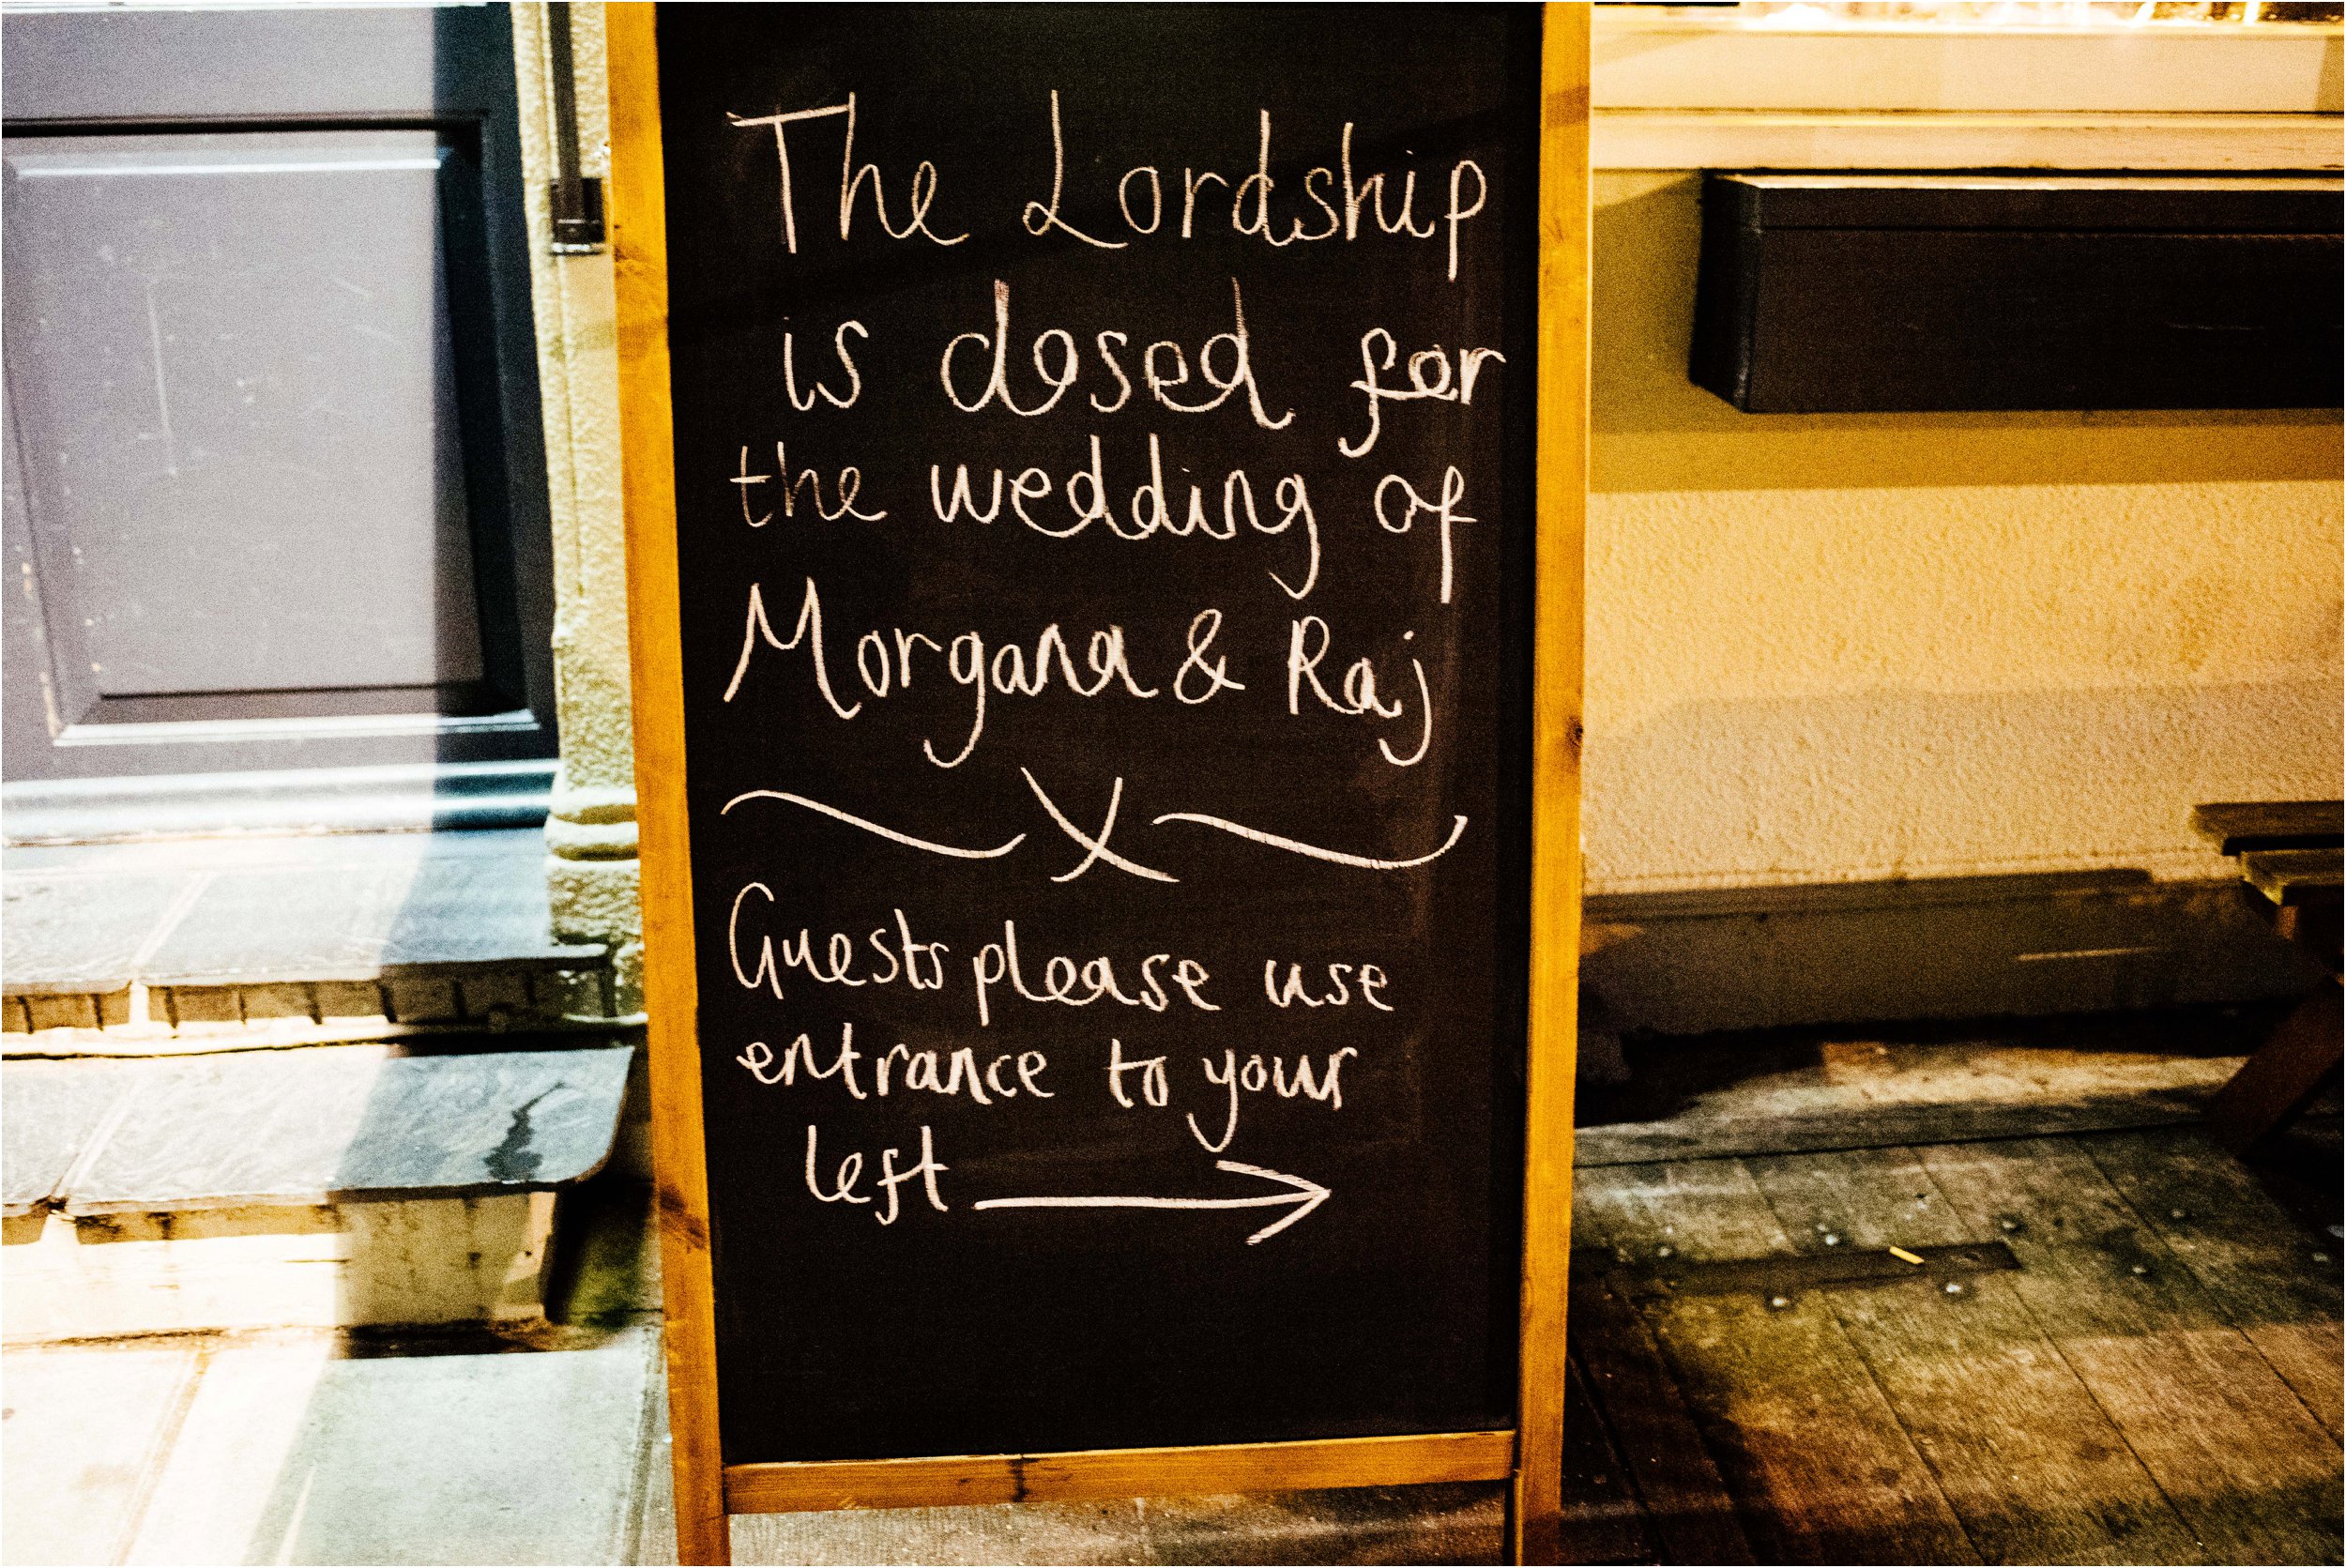 The Lordship
is closed for
the wedding of
Morgana & Raj
X
Guests please use
entrance to your
left →